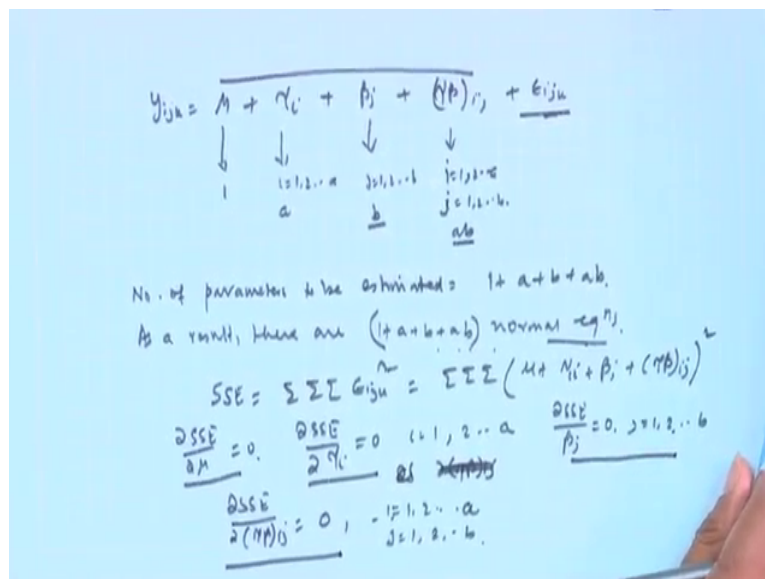 y_{ijk} = μ + τ_i + β_j + (τβ)_{ij} + ε_{ijk}
↓ ↓ ↓ ↓
1 i=1,2..a j=1,2..b i=1,2..a
a b j=1,2..b.
ab
No. of parameters to be estimated = 1+a+b+ab.
As a result, there are (1+a+b+ab) normal eqⁿs.
SSE = Σ Σ Σ ε_{ijk}² = Σ Σ Σ (μ + τ_i + β_j + (τβ)_{ij})²
∂SSE/∂μ = 0. ∂SSE/∂τ_i = 0 i=1, 2..a ∂SSE/β_j = 0, j=1, 2..b
∂SSE/∂(τβ)_{ij} = 0, i=1, 2...a
j=1, 2..b.